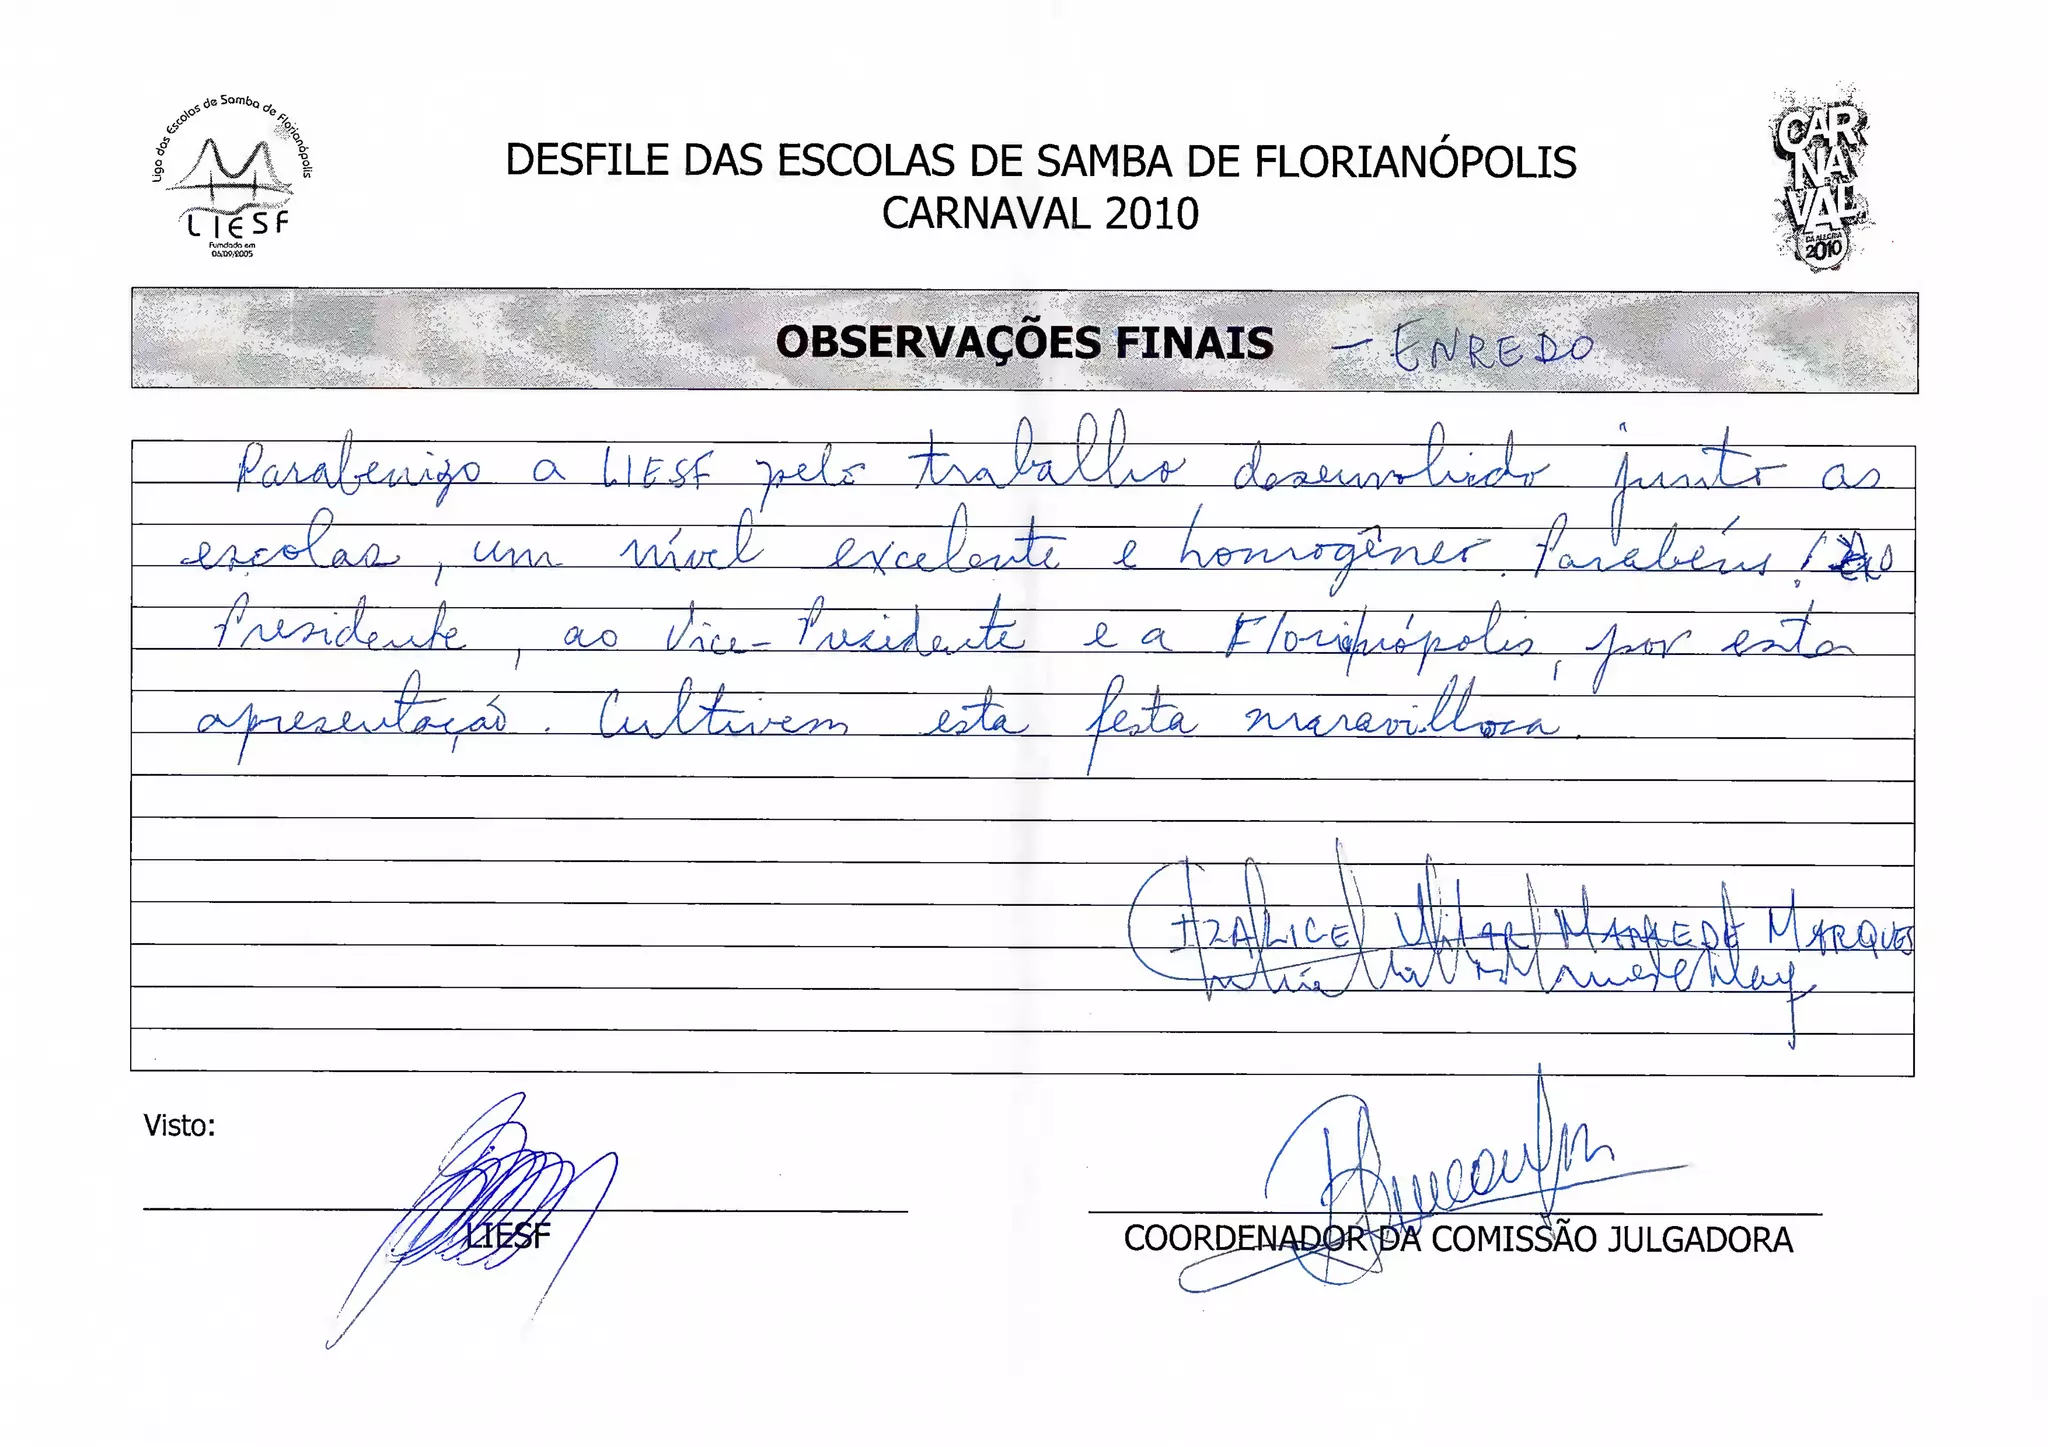 Liga das Escolas de Samba de Florianópolis
LIESF
Fundada em
06/09/2005
DESFILE DAS ESCOLAS DE SAMBA DE FLORIANÓPOLIS
CARNAVAL 2010
CAR
NA
VAL
DA ALEGRIA
2010
OBSERVAÇÕES FINAIS - ENREDO
Parabenizo a LIESF pelo trabalho desenvolvido junto as
escolas, um nível excelente e homogêneo. Parabéns! Ao
Presidente, ao Vice-Presidente e a Florianópolis, por esta
apresentação. Cultivem esta festa maravilhosa.
IZALICE MARQUES
Visto:
LIESF
COORDENADOR DA COMISSÃO JULGADORA